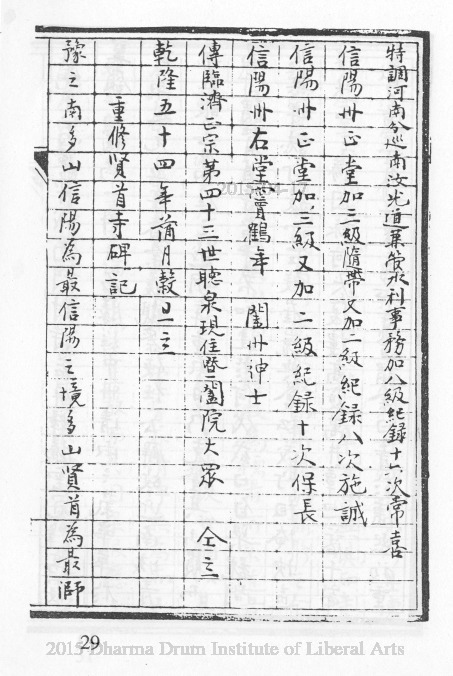 特調河南分巡南汝光道兼管水利事務加八級紀錄十六次常喜
信陽州正堂加三級隨帶又加二級紀錄八次施誠
信陽州正堂加三級又加二級紀錄十次保長
信陽州右堂賈鶴年 闔州紳士
傳臨濟正宗第四十三世聰泉現住暨闔院大眾 仝立
乾隆五十四年蒲月穀旦立
重修賢首寺碑記
豫之南多山信陽為最信陽之境多山賢首為最㴻
29
2015 Dharma Drum Institute of Liberal Arts